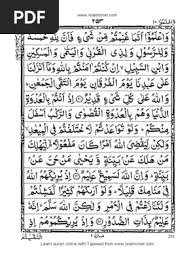 PDF
www.islamicnet.com
٢٥٣
وَاعْلَمُوْٓا اَنَّمَا غَنِمْتُمْ مِّنْ شَیْءٍ فَاَنَّ لِلّٰهِ خُمُسَهٗ
وَلِلرَّسُوْلِ وَلِذِی الْقُرْبٰی وَالْیَتٰمٰی وَالْمَسٰكِیْنِ
وَابْنِ السَّبِیْلِ اِنْ كُنْتُمْ اٰمَنْتُمْ بِاللّٰهِ وَمَاۤ اَنْزَلْنَا
عَلٰی عَبْدِنَا یَوْمَ الْفُرْقَانِ یَوْمَ الْتَقَی الْجَمْعٰنِ وَ
اللّٰهُ عَلٰی كُلِّ شَیْءٍ قَدِیْرٌ اِذْ اَنْتُمْ بِالْعُدْوَةِ
الدُّنْیَا وَهُمْ بِالْعُدْوَةِ الْقُصْوٰی وَالرَّكْبُ اَسْفَلَ
مِنْكُمْ وَلَوْ تَوَاعَدْتُّمْ لَاخْتَلَفْتُمْ فِی الْمِیْعٰدِ وَ
لٰكِنْ لِّیَقْضِیَ اللّٰهُ اَمْرًا كَانَ مَفْعُوْلًا لِّیَهْلِكَ
مَنْ هَلَكَ عَنْۢ بَیِّنَةٍ وَّیَحْیٰی مَنْ حَیَّ عَنْۢ بَیِّنَةٍ
وَاِنَّ اللّٰهَ لَسَمِیْعٌ عَلِیْمٌ اِذْ یُرِیْكَهُمُ اللّٰهُ فِیْ
مَنَامِكَ قَلِیْلًا وَلَوْ اَرٰىكَهُمْ كَثِیْرًا لَّفَشِلْتُمْ
وَلَتَنَازَعْتُمْ فِی الْاَمْرِ وَلٰكِنَّ اللّٰهَ سَلَّمَ اِنَّهٗ
عَلِیْمٌۢ بِذَاتِ الصُّدُوْرِ وَاِذْ یُرِیْكُمُوْهُمْ اِذِ
Learn quran online with Tajweed from www.islamicnet.com